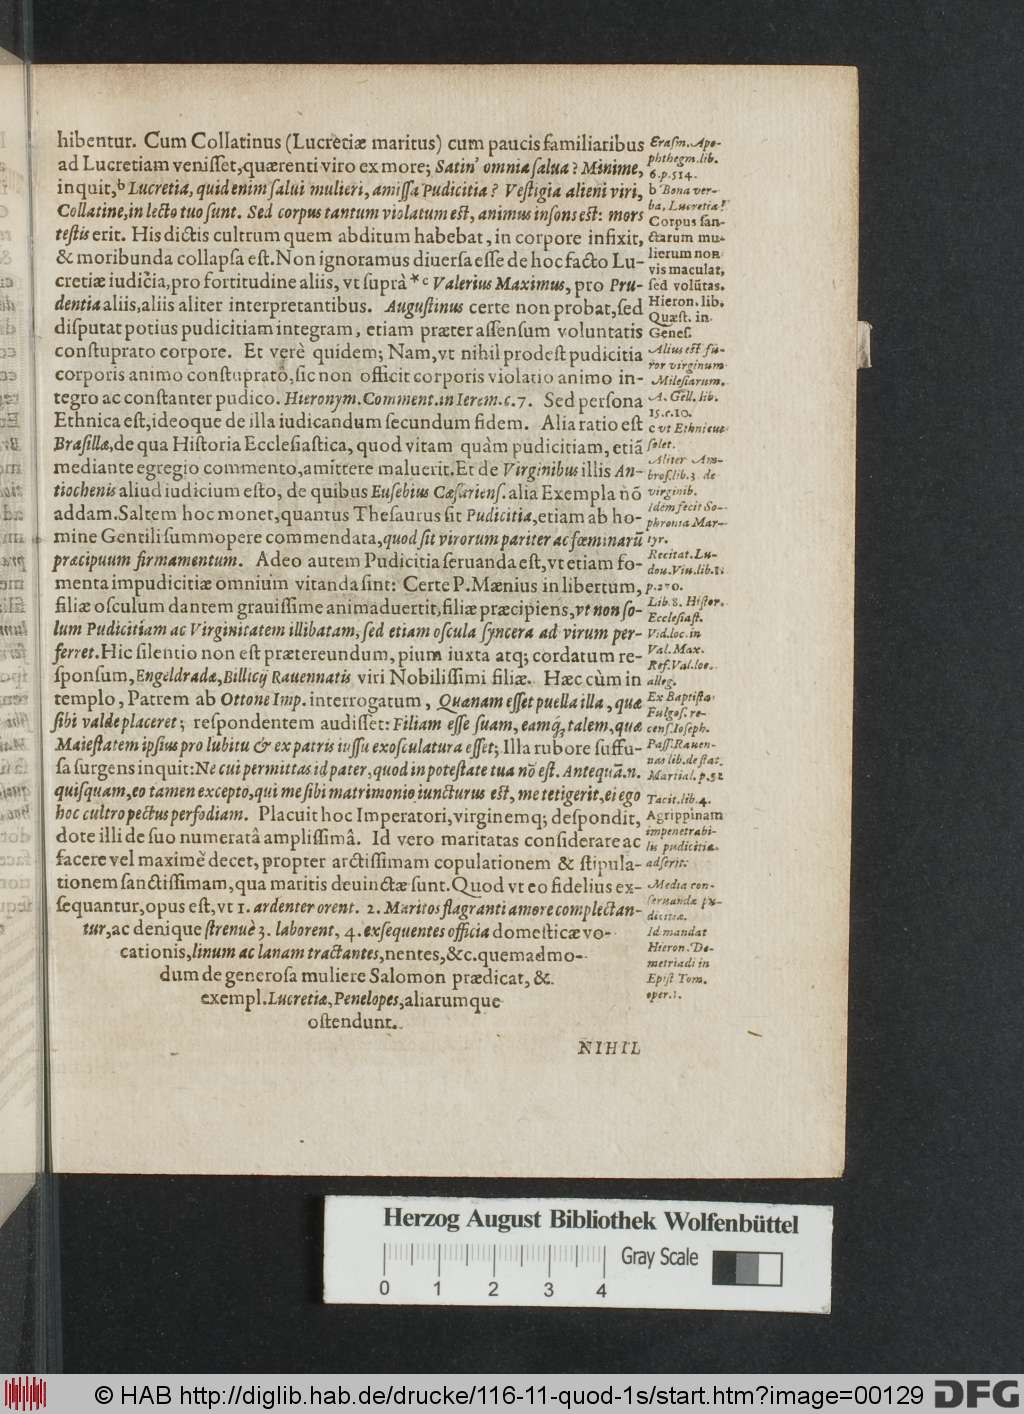 hibentur. Cum Collatinus (Lucretiæ maritus) cum paucis familiaribus
ad Lucretiam venisset, quærenti viro ex more; Satin' omnia salua? Minime,
inquit, b Lucretia, quid enim salui mulieri, amissa Pudicitia? Vestigia alieni viri,
Collatine, in lecto tuo sunt. Sed corpus tantum violatum est, animus insons est: mors
testis erit. His dictis cultrum quem abditum habebat, in corpore infixit,
& moribunda collapsa est. Non ignoramus diuersa esse de hoc facto Lu-
cretiæ iudicia, pro fortitudine aliis, vt suprà * c Valerius Maximus, pro Pru-
dentia aliis, aliis aliter interpretantibus. Augustinus certe non probat, sed
disputat potius pudicitiam integram, etiam præter assensum voluntatis
constuprato corpore. Et verè quidem; Nam, vt nihil prodest pudicitia
corporis animo constuprato, sic non officit corporis violatio animo in-
tegro ac constanter pudico. Hieronym. Comment. in Ierem. c. 7. Sed persona
Ethnica est, ideoque de illa iudicandum secundum fidem. Alia ratio est
Brasillæ, de qua Historia Ecclesiastica, quod vitam quàm pudicitiam, etiã
mediante egregio commento, amittere maluerit. Et de Virginibus illis An-
tiochenis aliud iudicium esto, de quibus Eusebius Cæsariens. alia Exempla nõ
addam. Saltem hoc monet, quantus Thesaurus sit Pudicitia, etiam ab ho-
mine Gentili summopere commendata, quod sit virorum pariter ac fœminarũ
præcipuum firmamentum. Adeo autem Pudicitia seruanda est, vt etiam fo-
menta impudicitiæ omnium vitanda sint: Certe P. Mænius in libertum,
filiæ osculum dantem grauissime animaduertit, filiæ præcipiens, vt non so-
lum Pudicitiam ac Virginitatem illibatam, sed etiam oscula syncera ad virum per-
ferret. Hic silentio non est prætereundum, pium iuxta atq; cordatum re-
sponsum, Engeldradæ, Billicij Rauennatis viri Nobilissimi filiæ. Hæc cùm in
templo, Patrem ab Ottone Imp. interrogatum, Quænam esset puella illa, quæ
sibi valde placeret; respondentem audisset: Filiam esse suam, eamq; talem, quæ
Maiestatem ipsius pro lubitu & ex patris iussu exosculatura esset; Illa rubore suffu-
sa surgens inquit: Ne cui permittas id pater, quod in potestate tua nõ est. Antequã.n.
quisquam, eo tamen excepto, qui me sibi matrimonio iuncturus est, me tetigerit, ei ego
hoc cultro pectus perfodiam. Placuit hoc Imperatori, virginemq; despondit,
dote illi de suo numeratâ amplissimâ. Id vero maritatas considerare ac
facere vel maximè decet, propter arctissimam copulationem & stipula-
tionem sanctissimam, qua maritis deuinctæ sunt. Quod vt eo fidelius ex-
sequantur, opus est, vt 1. ardenter orent. 2. Maritos flagranti amore complectan-
tur, ac denique strenuè 3. laborent, 4. exsequentes officia domesticæ vo-
cationis, linum ac lanam tractantes, nentes, &c. quemadmo-
dum de generosa muliere Salomon prædicat, &.
exempl. Lucretiæ, Penelopes, aliarumque
ostendunt.
NIHIL
Erasm. Apo-
phthegm. lib.
6. p. 514.
b Bona ver-
ba, Lucretia!
Corpus san-
ctarum mu-
lierum non
vis maculat,
sed volũtas.
Hieron. lib.
Quæst. in
Genes.
Alius est fu-
ror virginum
Milesiarum.
A. Gell. lib.
15. c. 10.
c vt Ethnicus
solet.
Aliter Am-
bros. lib. 3. de
virginib.
Idem fecit So-
phronia Mar-
tyr.
Recitat. Lu-
dou. Viu. lib. 1.
p. 270.
Lib. 8. Histor.
Ecclesiast.
Vid. loc. in
Val. Max.
Ref. Val. loc.
alleg.
Ex Baptista
Fulgos. re-
cens. Ioseph.
Pass. Rauen-
nas lib. de stat.
Marital. p. 52
Tacit. lib. 4.
Agrippinam
impenetrabi-
lis pudicitiæ
adserit.
Media con-
seruandæ pu-
dicitiæ.
Id mandat
Hieron. De-
metriadi in
Epist Tom.
oper. 1.
Herzog August Bibliothek Wolfenbüttel
Gray Scale
0 1 2 3 4
© HAB http://diglib.hab.de/drucke/116-11-quod-1s/start.htm?image=00129
DFG